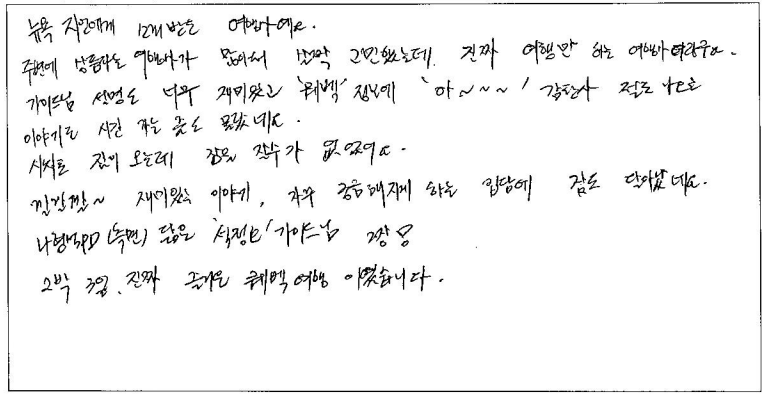 뉴욕 지인에게 소개받은 여행사예요.
주변에 상품파는 여행사가 많아서 살짝 고민했는데, 진짜 여행만 하는 여행사더라구요.
가이드님 설명도 너무 재미있고 '퀘벡' 정보에 '아~~~' 감탄사 절로 나오는
이야기로 시간 가는 줄도 몰랐네요.
집에 오는데 잠을 잘 수가 없었어요.
낄낄깔~ 재미있는 이야기, 자꾸 궁금해지게 하는 입담에 잠도 달아났네요.
나형석PD(옆면) 닮은 '식정E' 가이드님 짱!
2박 3일, 진짜 즐거운 퀘벡여행 이였습니다.